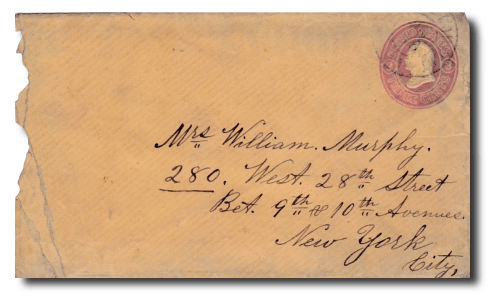 Mrs William. Murphy.
280. West. 28th Street
Bet. 9th & 10th Avenues.
New York
City,